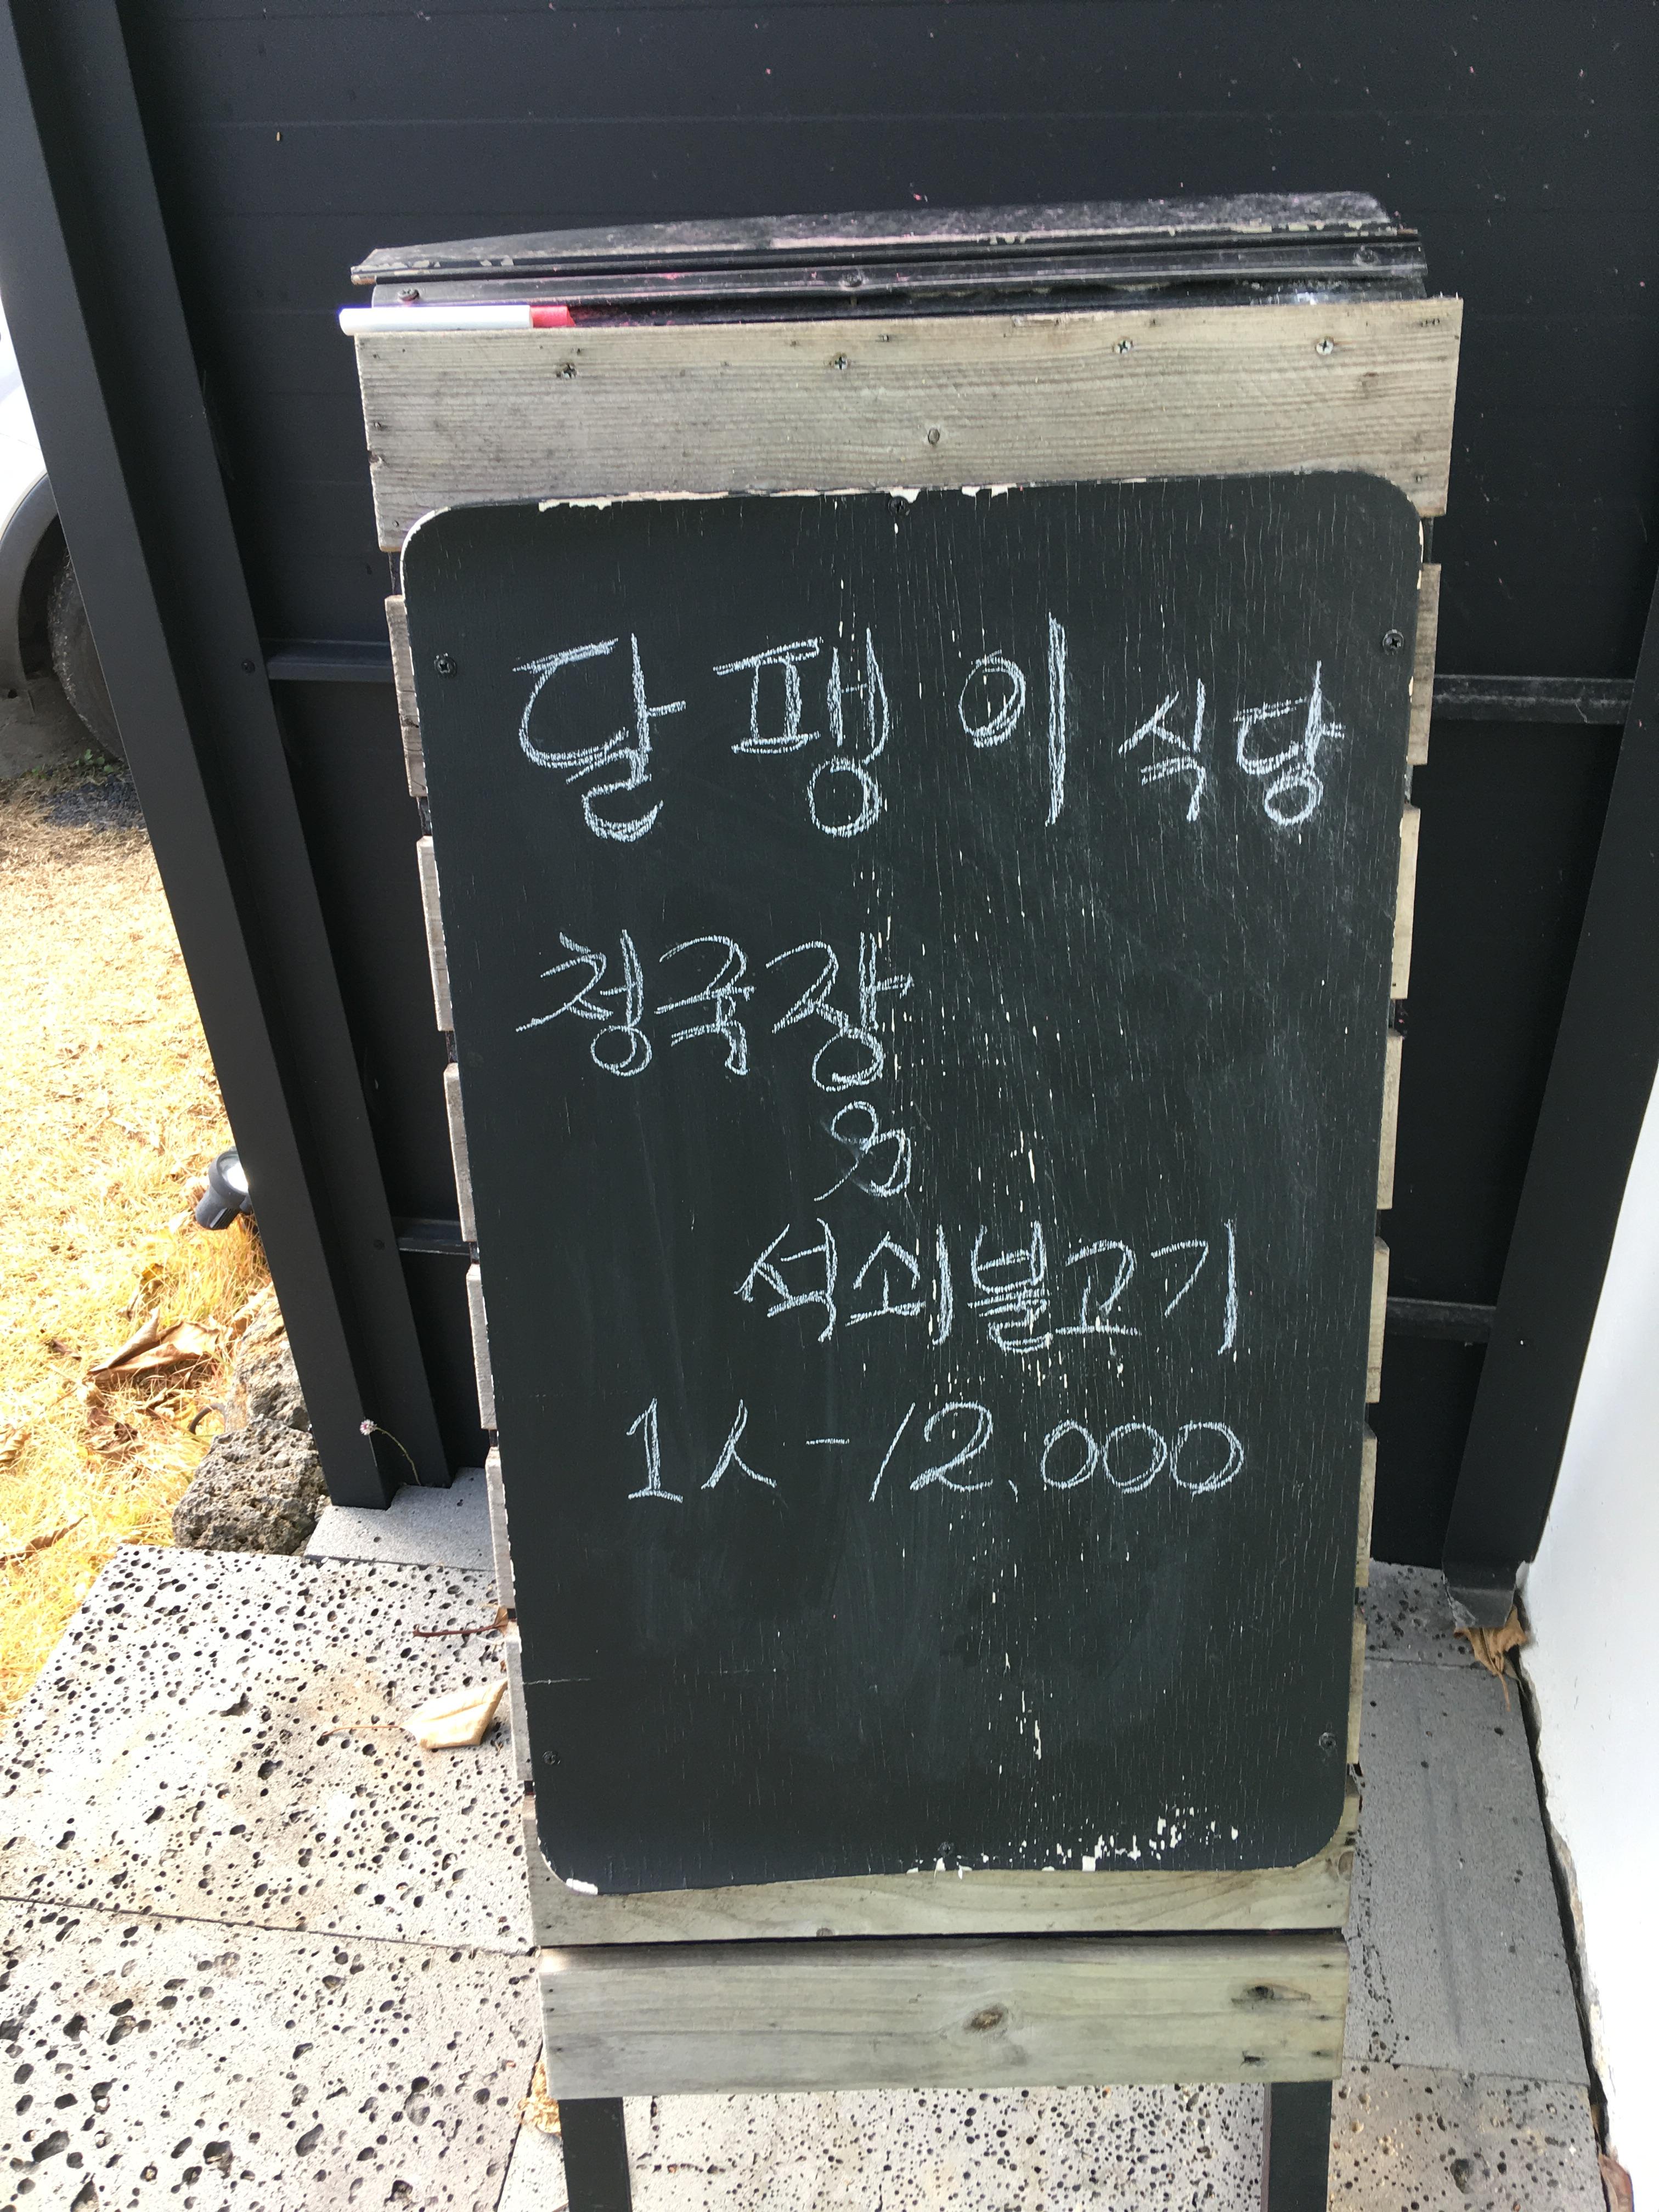 달팽이 식당
청국장
&
석쇠불고기
1人-12,000